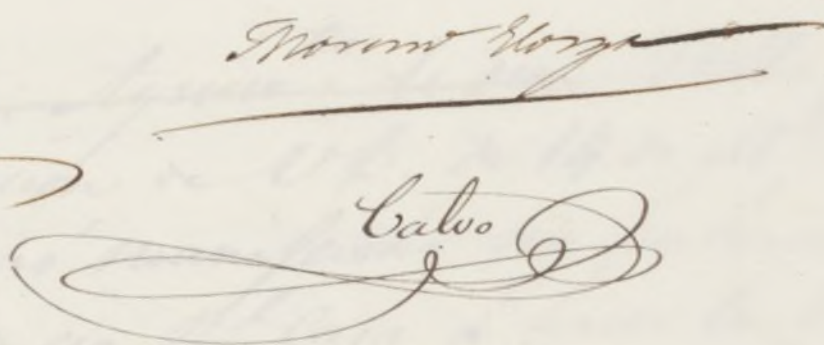 Moreno Elorza
Calvo